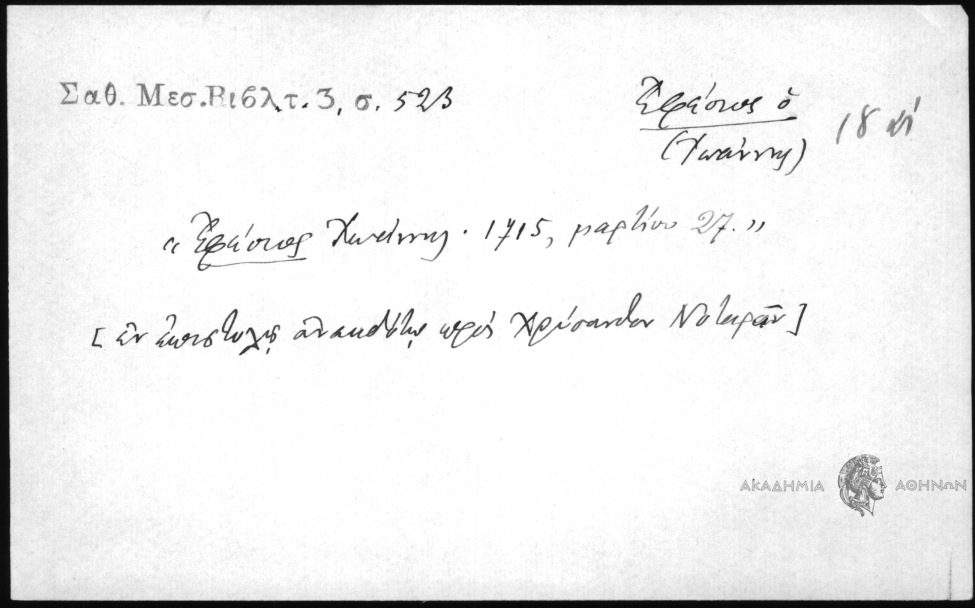 Σαθ. Μεσ. Βιβλ. τ. 3, σ. 523
Ἐφέσιος ὁ
(Ἰωάννης)
18 αἰ
« Ἐφέσιος Ἰωάννης · 1715, μαρτίου 27. »
[ ἐν ἐπιστολῇ ἀνεκδότῳ πρὸς Χρύσανθον Νοταρᾶν ]
ΑΚΑΔΗΜΙΑ ΑΘΗΝΩΝ